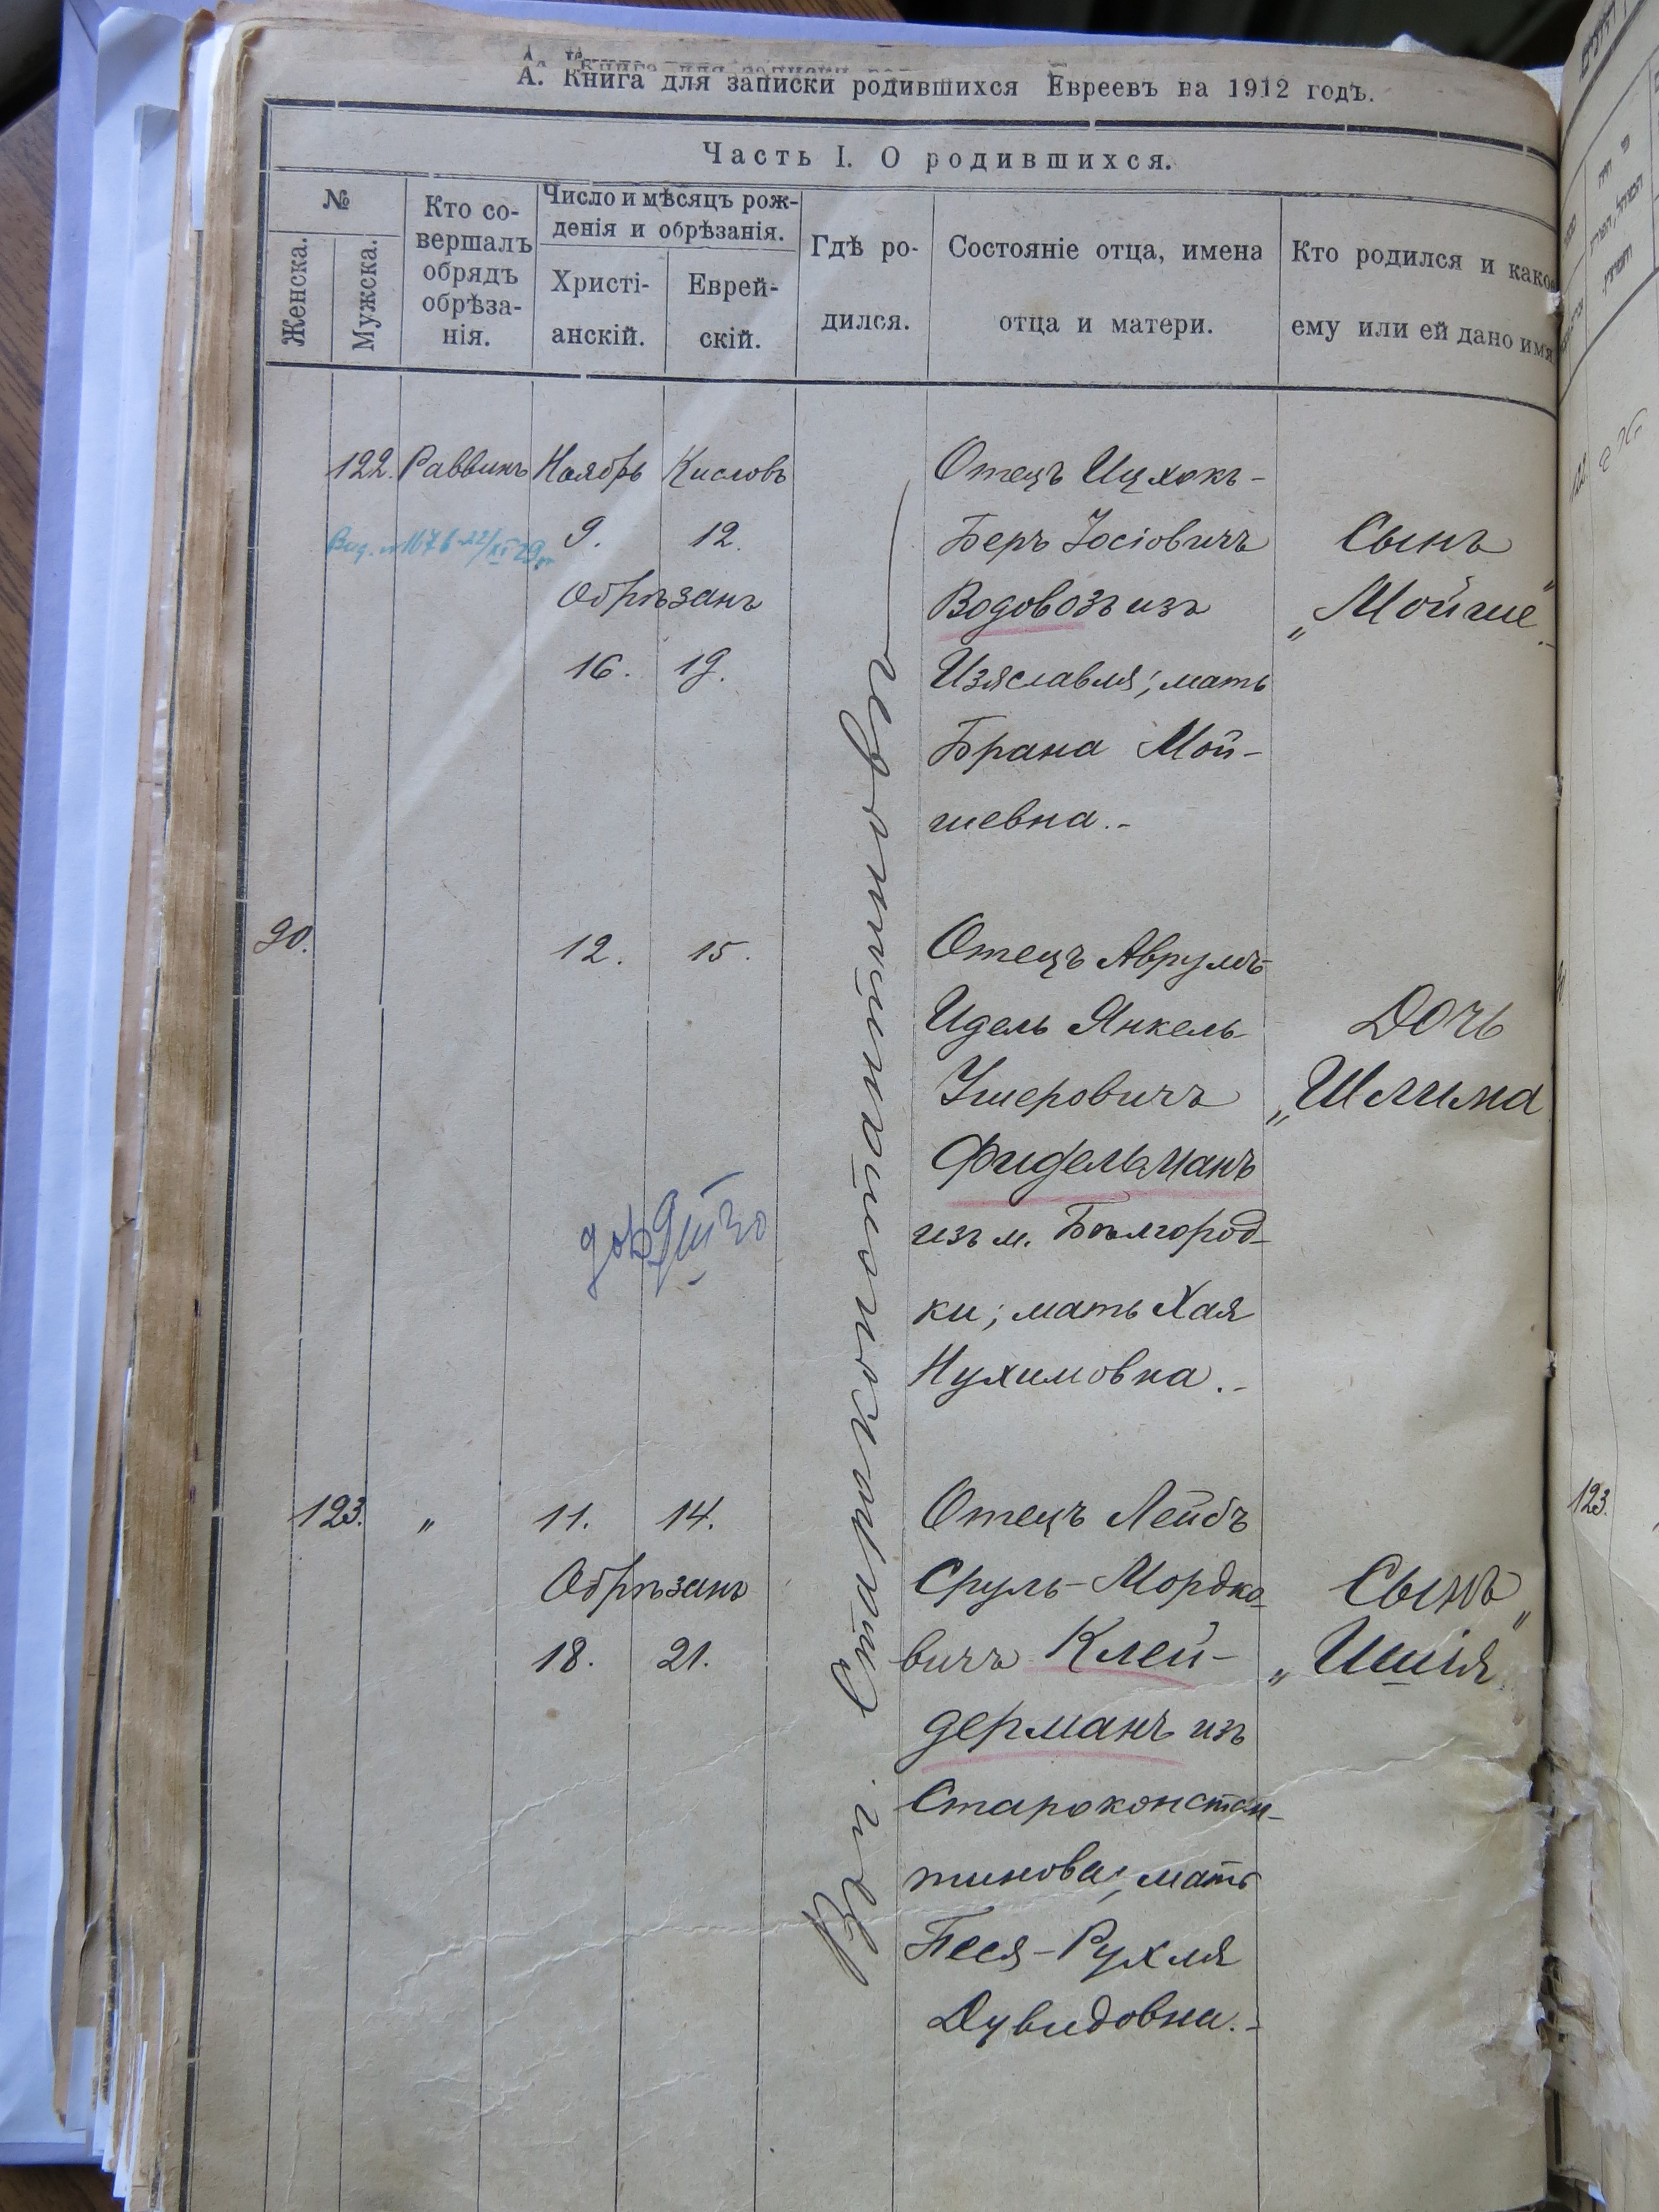 А. Книга для записки родившихся Евреевъ на 1912 годъ.
Часть I. О родившихся.
№
Женска.
Мужска.
Кто со-
вершалъ
обрядъ
обрѣза-
нія.
Число и мѣсяцъ рож-
денія и обрѣзанія.
Христі-
анскій.
Еврей-
скій.
Гдѣ ро-
дился.
Состояніе отца, имена
отца и матери.
Кто родился и какое
ему или ей дано имя
122. Раввинъ Ноябрь Кисловъ
9. 12.
Обрѣзанъ
16. 19.
Отецъ Ицхокъ-
Беръ Іосіовичъ
Водовозъ изъ
Изяславля; мать
Брана Мой-
шевна.-
Сынъ
„Мойше"
въ г. Староконстантиновѣ
90. 12. 15.
Отецъ Аврумъ-
Идель Янкель-
Ушеровичъ
Фидельманъ
изъ м. Бѣлгород-
ки; мать Хая
Нухимовна.-
Дочь
„Шлима
123. „ 11. 14.
Обрѣзанъ
18. 21.
Отецъ Лейбъ
Сруль-Мордко-
вичъ Клей-
дерманъ изъ
Староконстан-
тинова; мать
Песя-Рухля
Дувидовна.-
Сынъ
„Ишія"
123.